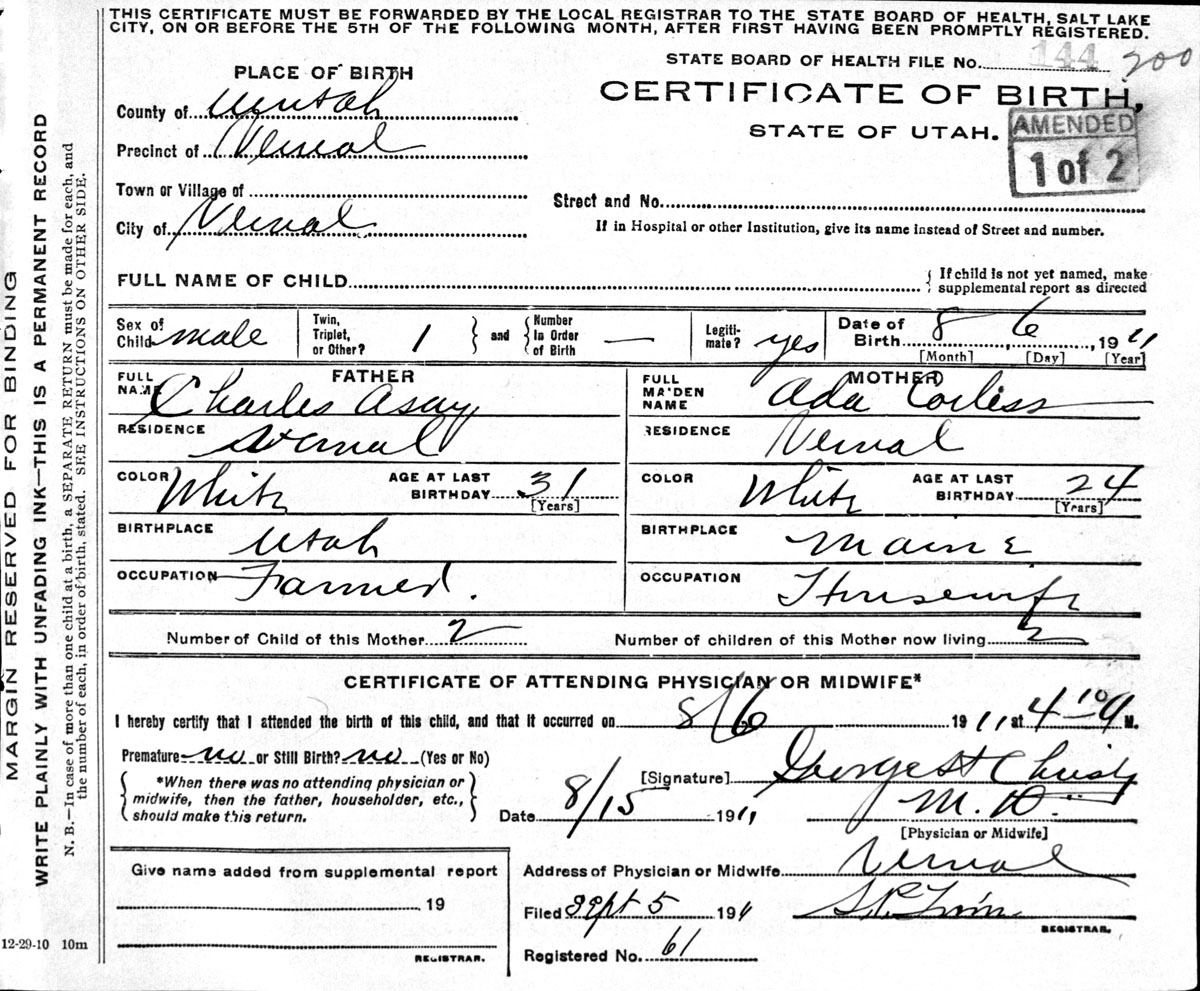 THIS CERTIFICATE MUST BE FORWARDED BY THE LOCAL REGISTRAR TO THE STATE BOARD OF HEALTH, SALT LAKE
CITY, ON OR BEFORE THE 5TH OF THE FOLLOWING MONTH, AFTER FIRST HAVING BEEN PROMPTLY REGISTERED.
STATE BOARD OF HEALTH FILE No. 144 200
PLACE OF BIRTH
CERTIFICATE OF BIRTH,
STATE OF UTAH.
AMENDED
1 of 2
County of Uintah
Precinct of Vernal
Town or Village of
City of Vernal
Street and No.
If in Hospital or other Institution, give its name instead of Street and number.
FULL NAME OF CHILD
If child is not yet named, make
supplemental report as directed
Sex of
Child male
Twin,
Triplet,
or Other? 1
and
Number
In Order
of Birth —
Legiti-
mate? yes
Date of
Birth 8 6 1911
[Month] [Day] [Year]
FATHER
FULL
NAME Charles Asay
RESIDENCE Vernal
COLOR White
AGE AT LAST
BIRTHDAY 31
[Years]
BIRTHPLACE Utah
OCCUPATION Farmer.
MOTHER
FULL
MAIDEN
NAME Ada Corliss
RESIDENCE Vernal
COLOR White
AGE AT LAST
BIRTHDAY 24
[Years]
BIRTHPLACE Maine
OCCUPATION Housewife
Number of Child of this Mother 2
Number of children of this Mother now living 2
CERTIFICATE OF ATTENDING PHYSICIAN OR MIDWIFE*
I hereby certify that I attended the birth of this child, and that it occurred on 8/6 1911 at 4 10 a M.
Premature no or Still Birth? no (Yes or No)
*When there was no attending physician or
midwife, then the father, householder, etc.,
should make this return.
[Signature] George H Christy
M. D.
[Physician or Midwife]
Date 8/15 1911
Give name added from supplemental report
19
REGISTRAR.
Address of Physician or Midwife Vernal
Filed Sept 5 1911
REGISTRAR.
Registered No. 61
12-29-10 10m
MARGIN RESERVED FOR BINDING
WRITE PLAINLY WITH UNFADING INK—THIS IS A PERMANENT RECORD
N. B.—In case of more than one child at a birth, a SEPARATE RETURN must be made for each, and
the number of each, in order of birth, stated. SEE INSTRUCTIONS ON OTHER SIDE.